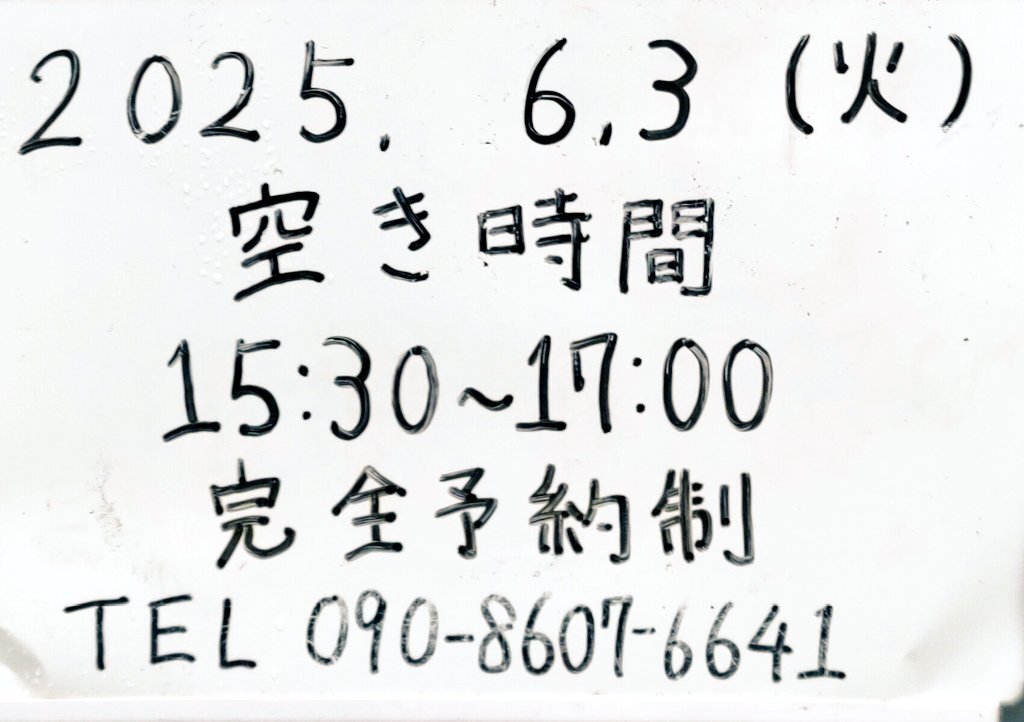 2025. 6.3 (火)
空き時間
15:30~17:00
完全予約制
TEL 090-8607-6641